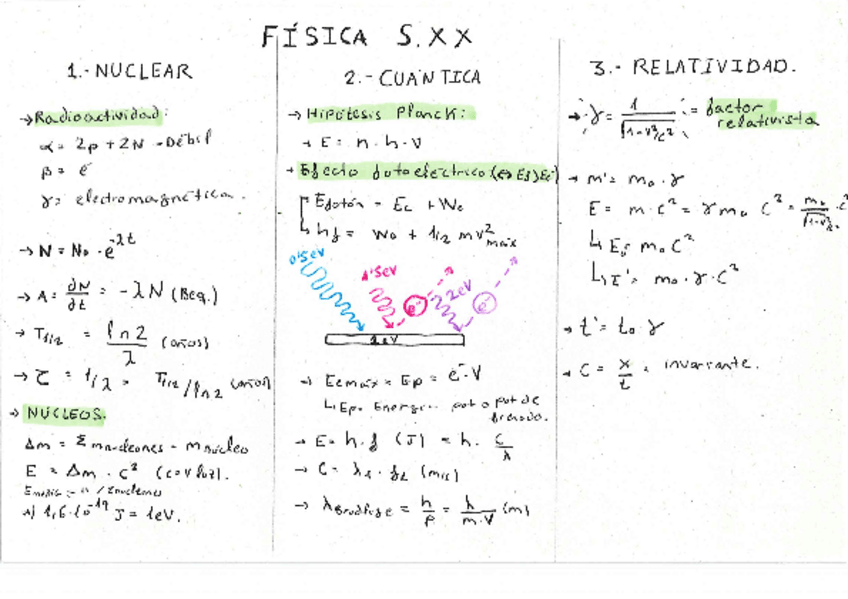 FÍSICA S.XX
1.- NUCLEAR
→ Radioactividad:
α = 2p + 2N - Débil
β = e⁻
γ = electromagnética.
→ N = N₀ · e^-λt
→ A = ∂N/∂t = -λN (Beq.)
→ T1/2 = ln2/λ (años)
→ τ = 1/λ = T1/2/ln2 (años)
→ NÚCLEOS.
Δm = Σ mnucleones - mnúcleo
E = Δm · c² (c=v luz).
1,6·10⁻¹⁹ J = 1eV.
2.- CUÁNTICA
→ Hipótesis Planck:
→ E = n · h · ν
→ Efecto fotoeléctrico (⇔ Ef>Ec)
Efotón = Ec + W₀
↳ hf = W₀ + 1/2 mv²máx
0'5eV
1'5eV
e⁻
2eV
e⁻
1eV
→ Ecmáx = Ep = e⁻·V
↳ Ep = Energía pot o pot de frenado.
→ E = h·f (J) = h · c/λ
→ C = (m/s)
→ λBroglie = h/p = h/m·v (m)
3.- RELATIVIDAD.
→ γ = 1/√1-v²/c² = factor relativista
→ m' = m₀ · γ
E = m·c² = γ m₀ c² = m₀/√1-v²/c² · c²
↳ E₀ = m₀c²
= m₀ · γ · c²
→ t' = t₀ γ
→ C = x/t = invariante.